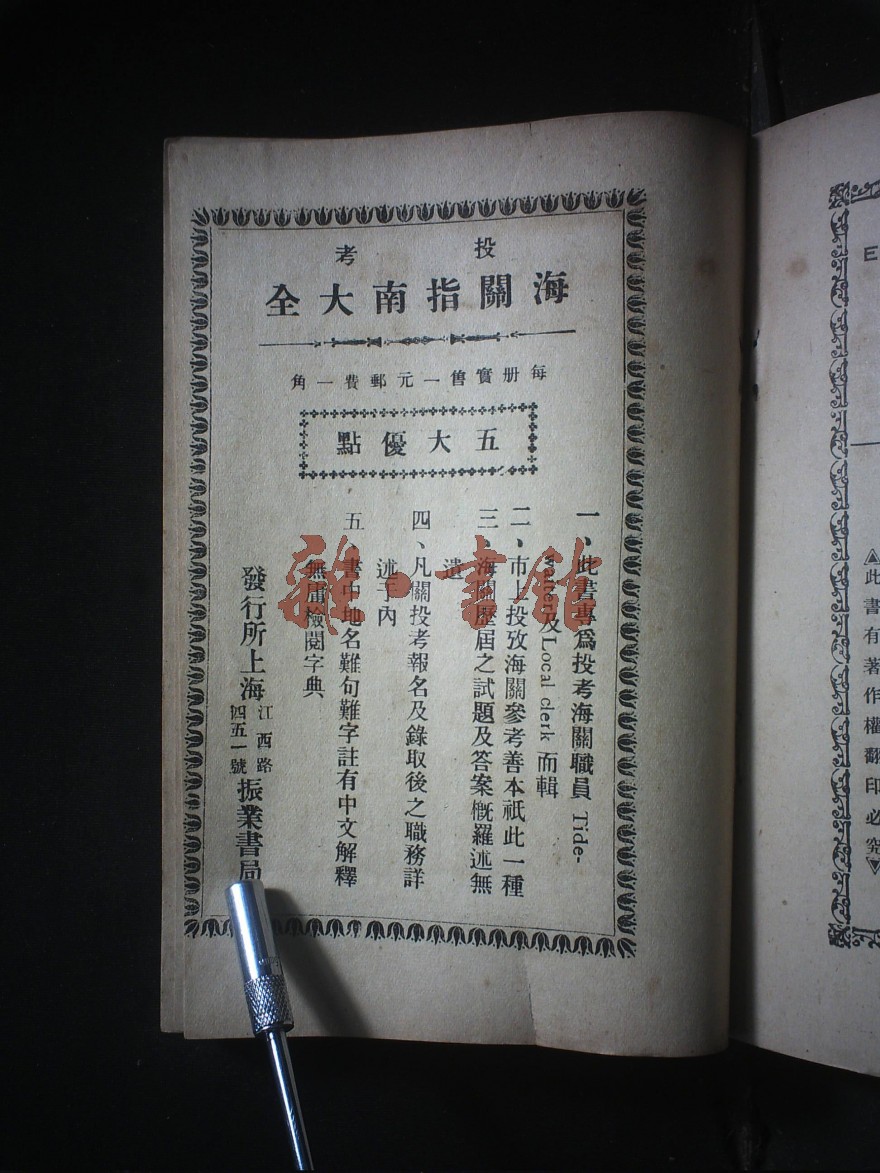 投考
海關指南大全
每册實售一元郵費一角
五大優點
一、此書專爲投考海關職員 Tide-
waiter及Local clerk 而輯
二、市上投攷海關參考善本祇此一種
三、海關歷届之試題及答案概羅述無
遺
四、凡關投考報名及錄取後之職務詳
述于內
五、書中地名難句難字註有中文解釋
無庸檢閱字典
發行所上海江西路四五一號振業書局
雜·書館
E
▲此書有著作權翻印必究▼